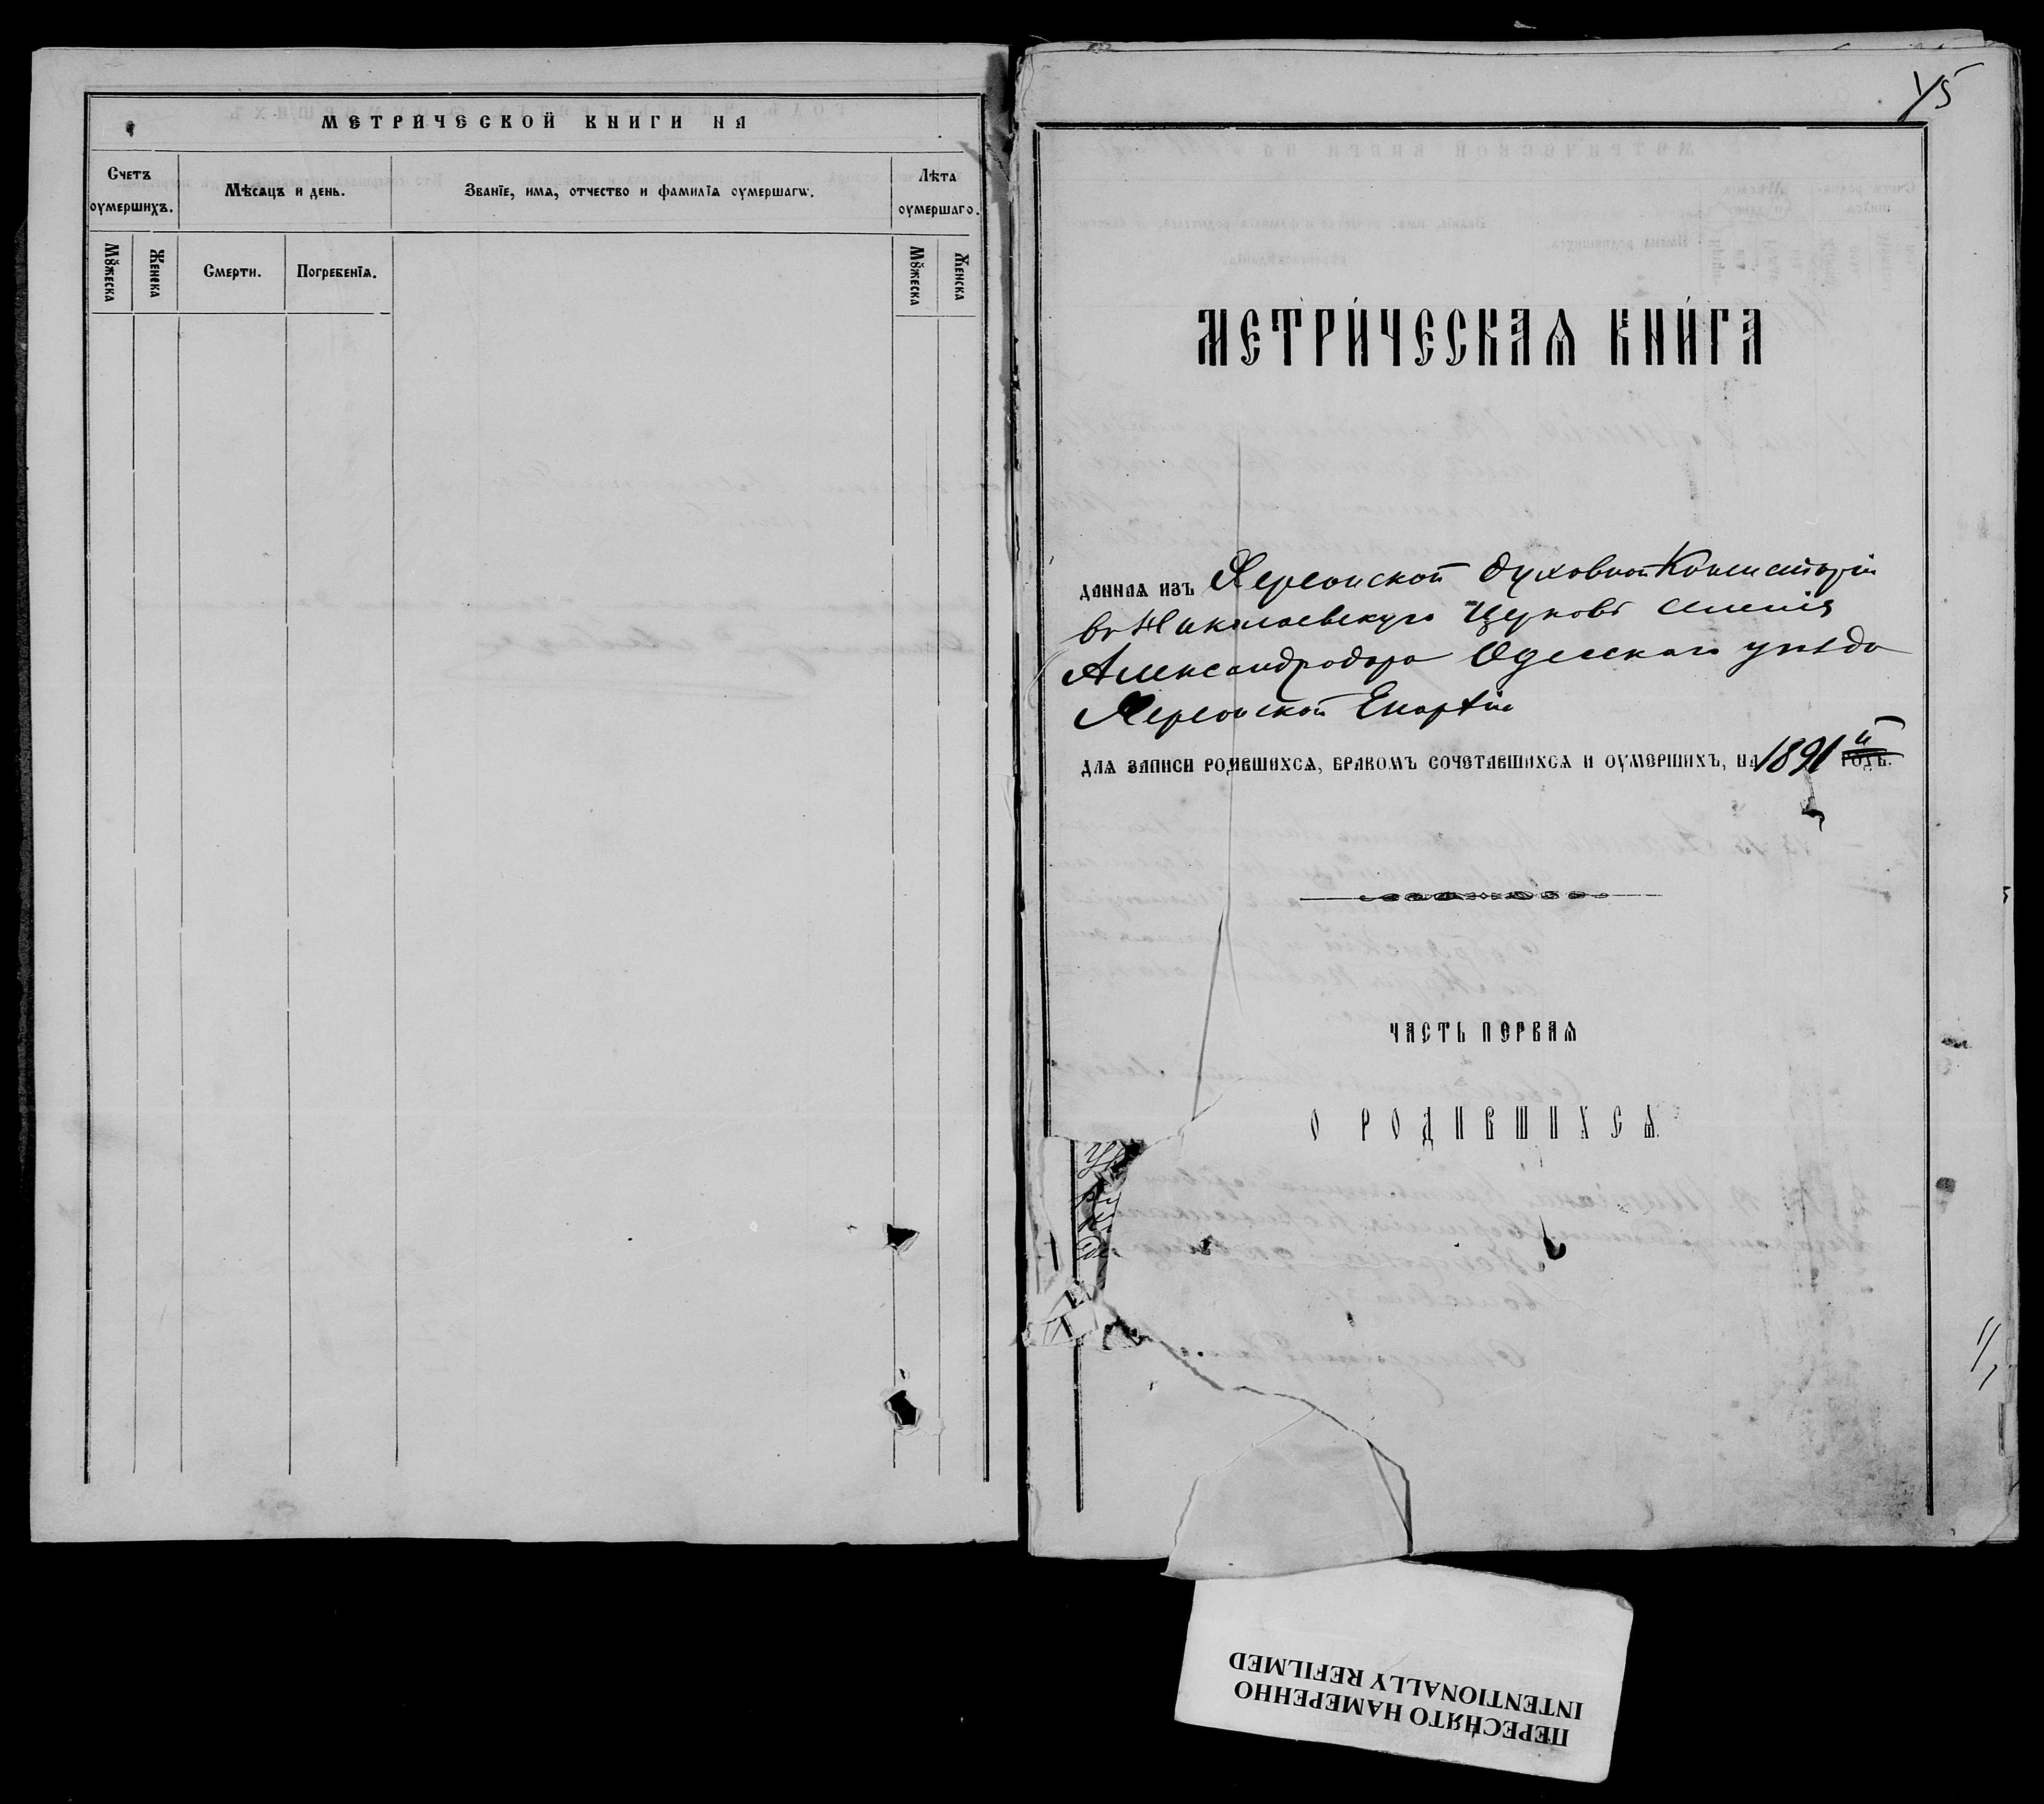 МЕТРИЧЕСКОЙ КНИГИ НА
Счетъ оумершихъ.
Мѣсяцъ и день.
Званїе, имѧ, отчество и фамилїѧ оумершагѡ.
Лѣта оумершаго.
Мꙋжеска
Женска
Смерти.
Погребенїѧ.
Мꙋжеска
Женска
45
МЕТРИ́ЧЕСКАѦ КНИ́ГА
даннаѧ изъ Херсонской Духовной Консисторіи
въ Николаевскую Церковь имѣнія
Александродара Одесскаго уѣзда
Херсонской Епархіи
длѧ записи родившихсѧ, бракомъ сочетавшихсѧ и оумершихъ, на 1891 й годъ.
ЧАСТЬ ПЕРВАѦ
О РОДИВШИХСѦ.
ПЕРЕСНЯТО НАМЕРЕННО
INTENTIONALLY REFILMED